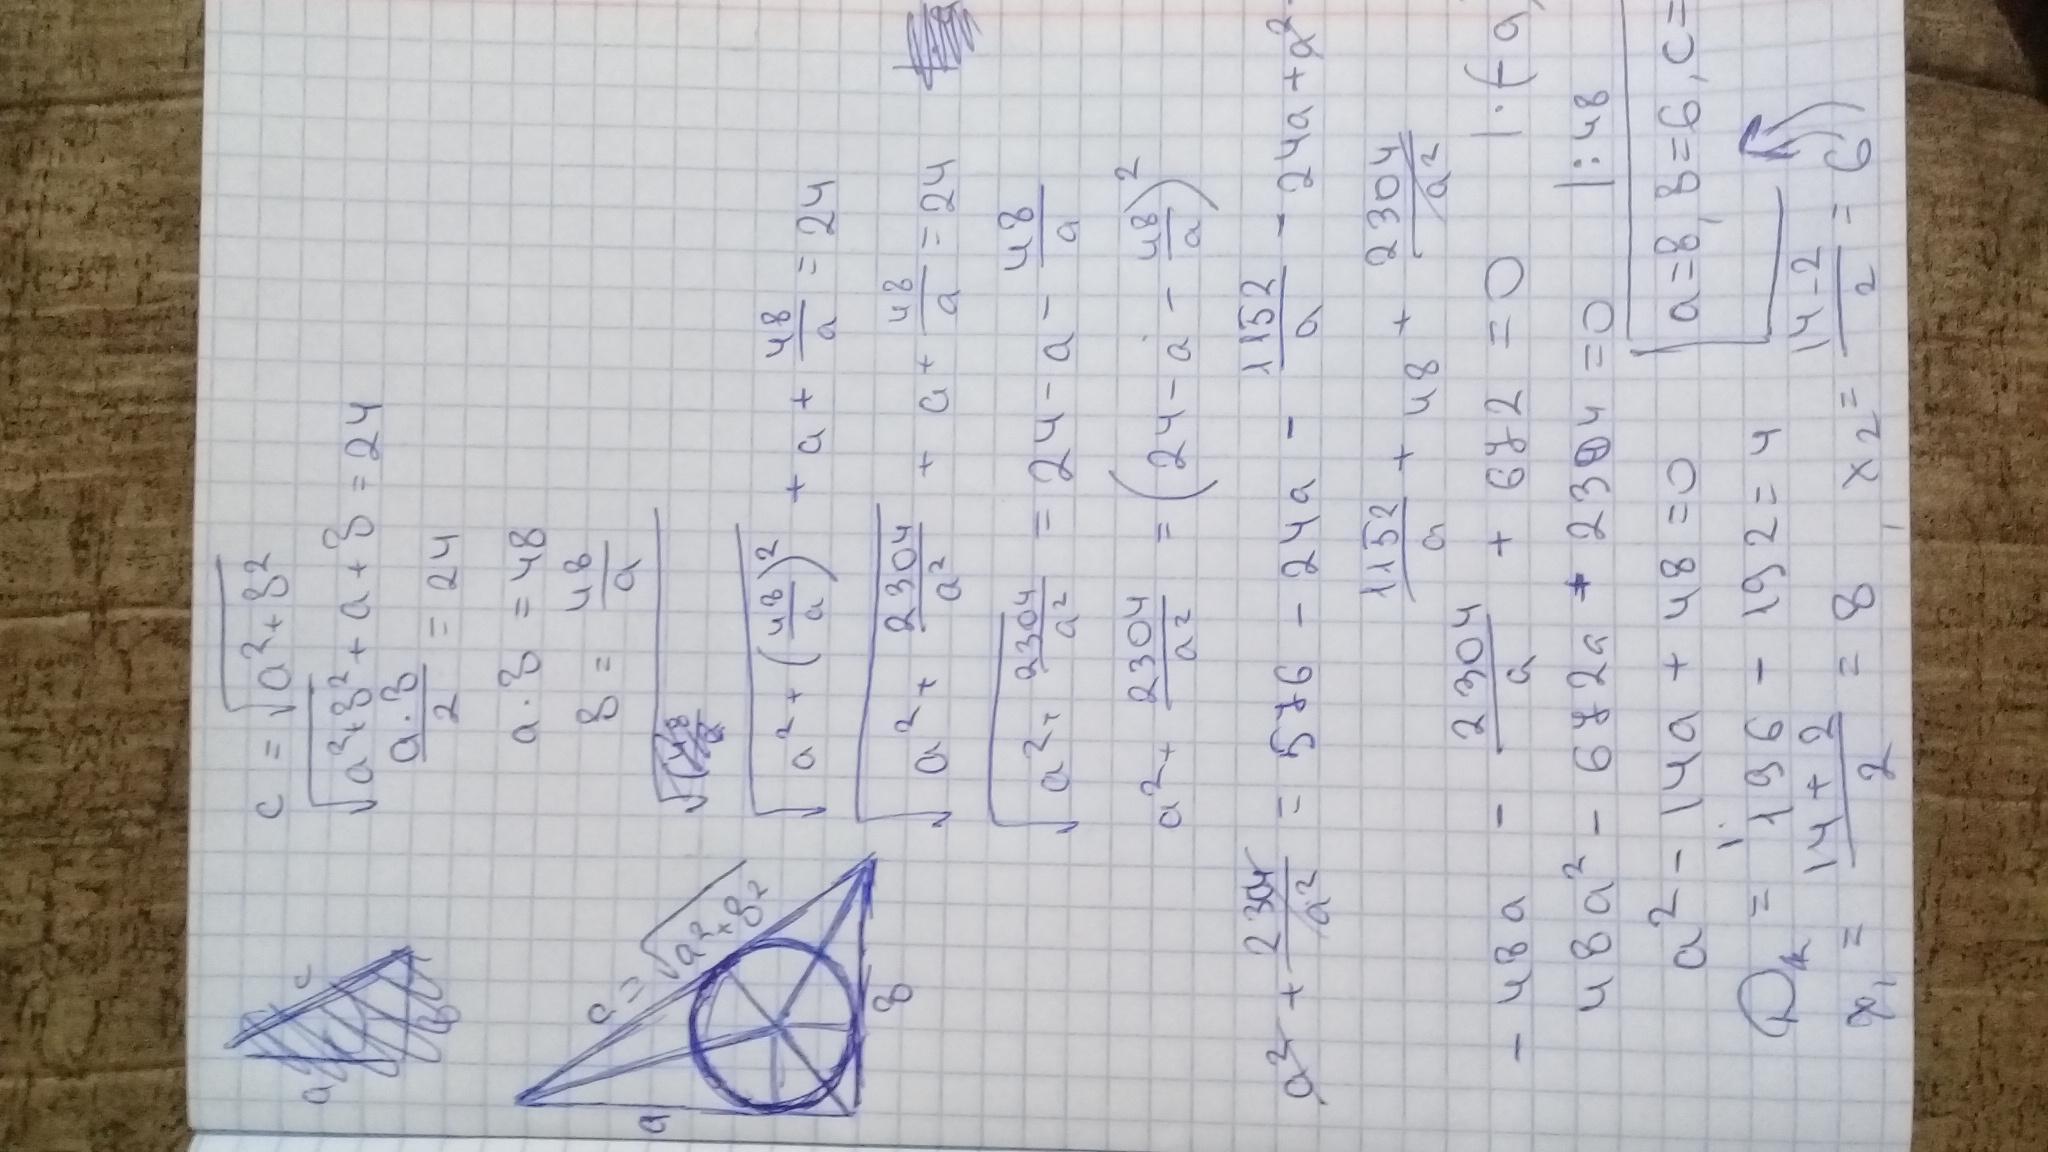 a
c
в
a
c = √a²+в²
в
c = √a²+в²
√a²+в² + a + в = 24
a·в/2 = 24
a·в = 48
в = 48/a
√a² + (48/a)² + a + 48/a = 24
√a² + 2304/a² + a + 48/a = 24
√a² + 2304/a² = 24 - a - 48/a
a² + 2304/a² = (24 - a - 48/a)²
a² + 2304/a² = 576 - 24a - 1152/a - 24a + a²
1152/a + 48 + 2304/a²
- 48a - 2304/a + 672 = 0 |·(-a)
48a² - 672a + 2304 = 0 |:48
a² - 14a + 48 = 0
a=8, в=6, c=
D = 196 - 192 = 4
x₁ = 14+2/2 = 8, x₂ = 14-2/2 = 6